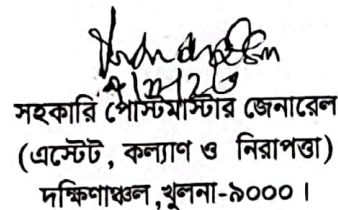 সহকারি পোস্টমাস্টার জেনারেল
(এস্টেট, কল্যাণ ও নিরাপত্তা)
দক্ষিণাঞ্চল,খুলনা-৯০০০।